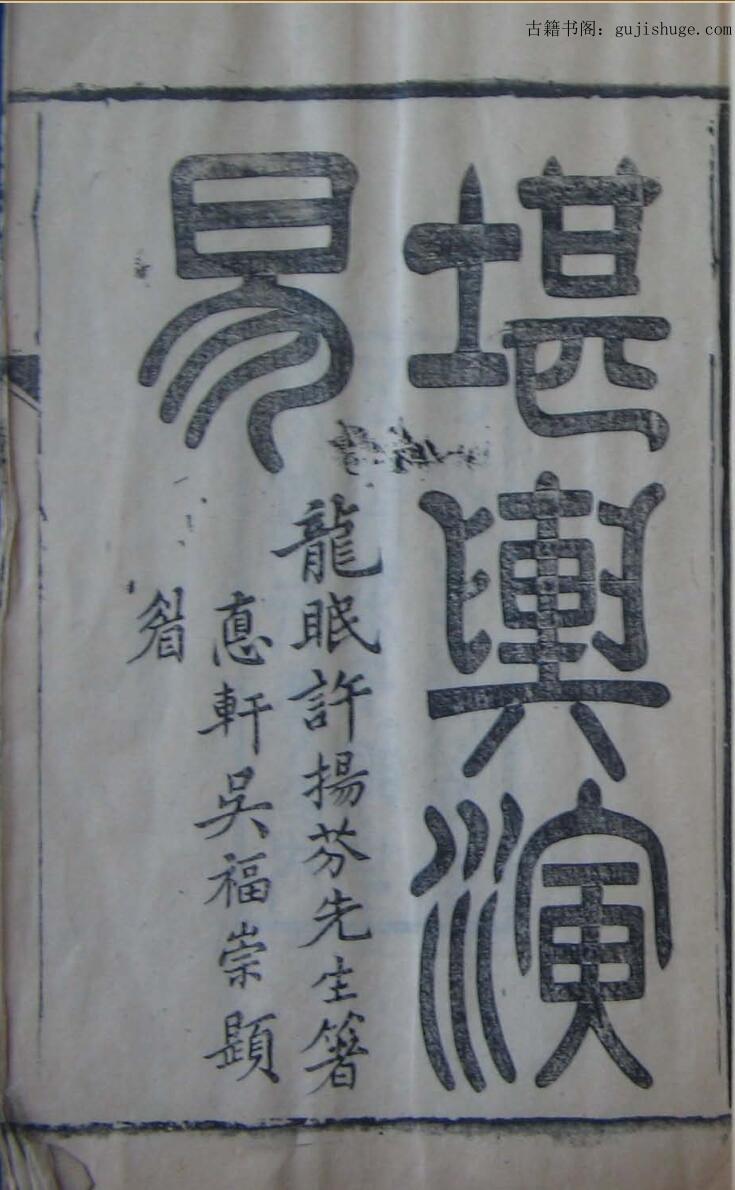 古籍书阁：gujishuge.com
堪輿演
易
龍眠許揚芬先生箸
悳軒吳福崇題
耑